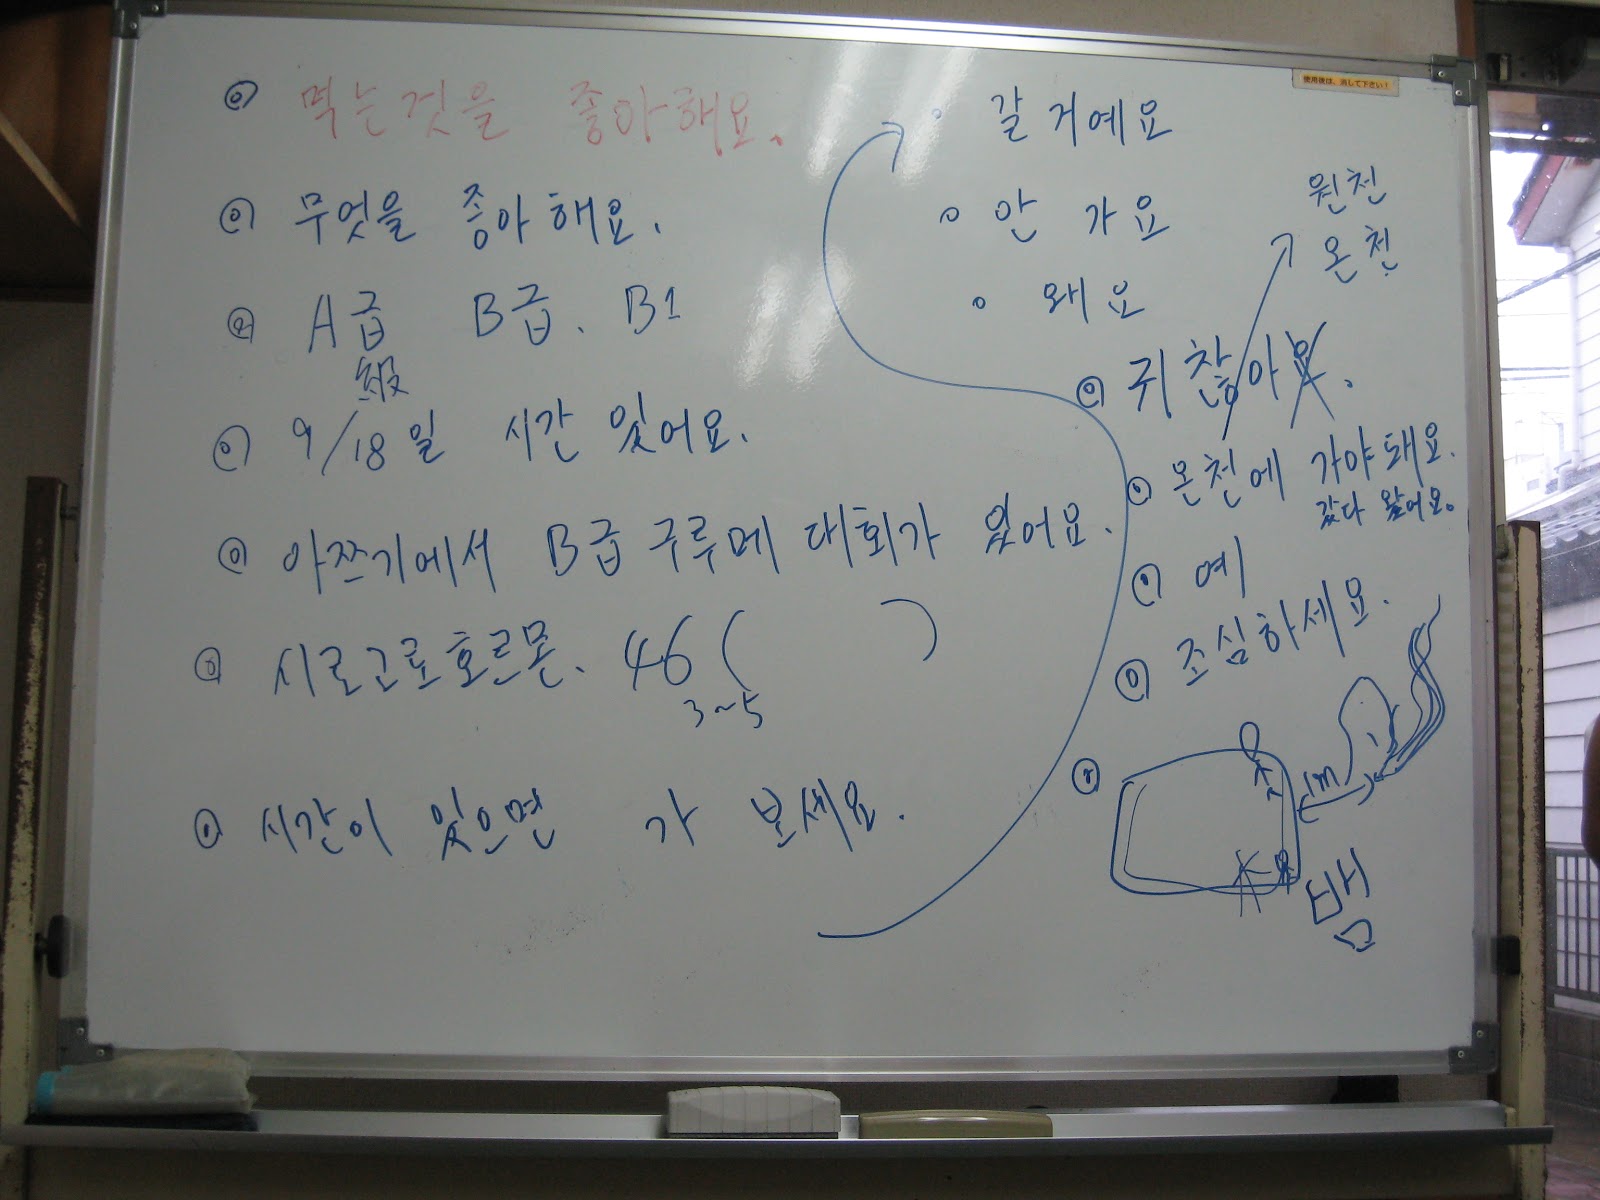 먹는것을 좋아해요.
무엇을 좋아해요.
A급 B급. B1
級
9/18일 시간 있어요.
아쯔기에서 B급 구루메 대회가 있어요.
시로고로호르몬. 46 ( )
3~5
시간이 있으면 가 보세요.
使用後は、消して下さい!
갈 거예요
안 가요
왜요
원천
온천
귀찮아요.
온천에 가야돼요.
갔다 왔어요.
예
조심하세요.
1m
뱀